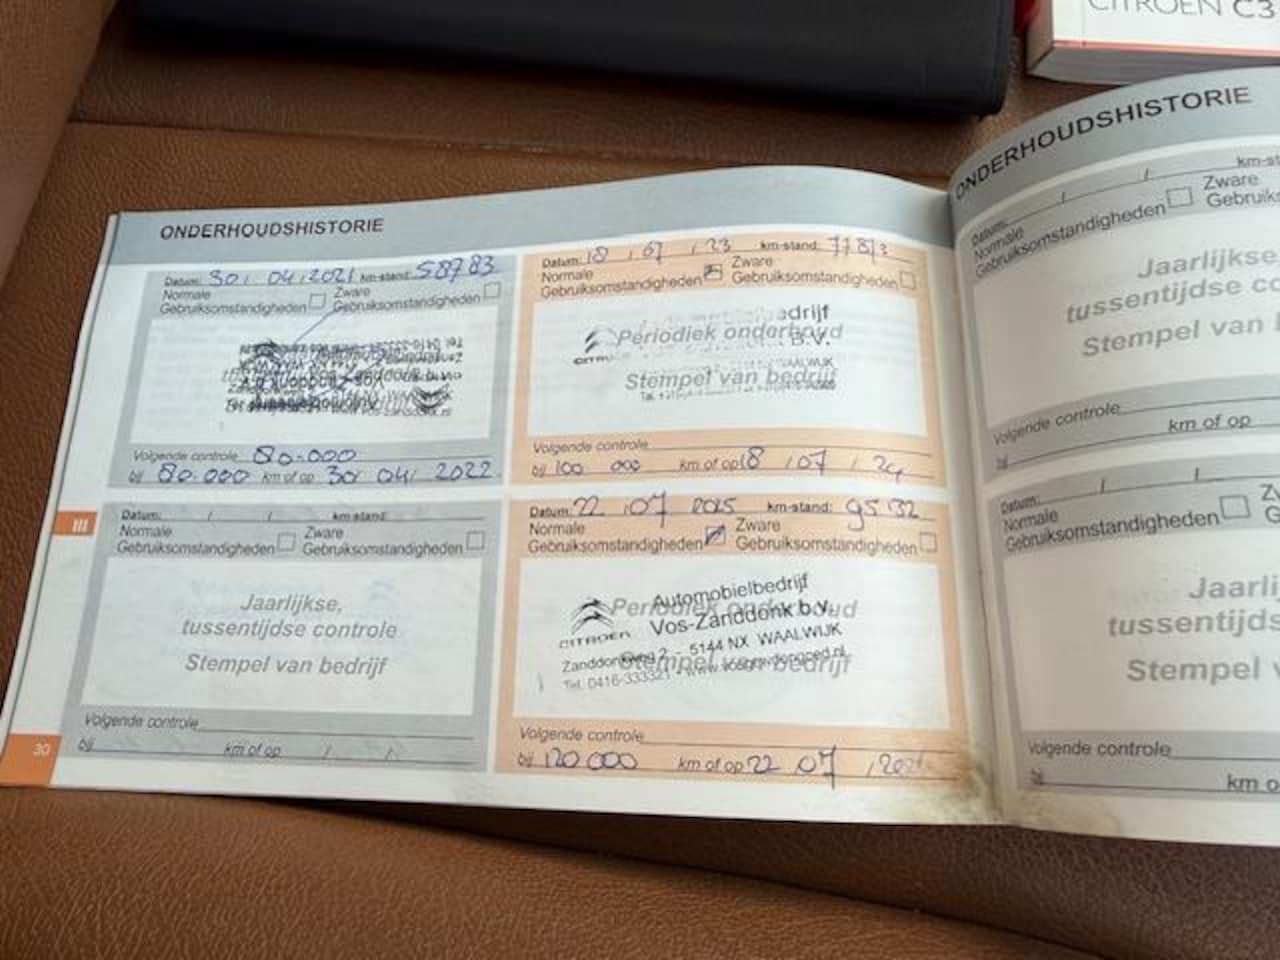 CITROËN C3
ONDERHOUDSHISTORIE
Datum: 30 / 04 / 2021 km-stand: 58783
Normale Gebruiksomstandigheden
Zware Gebruiksomstandigheden
Volgende controle 80.000
bij 80.000 km of op 30 / 04 / 2022
Datum: 18 / 07 / 23 km-stand:
Normale Gebruiksomstandigheden
Zware Gebruiksomstandigheden
Periodiek onderhoud
B.V.
WAALWIJK
Stempel van bedrijf
Volgende controle
bij 100 000 km of op 18 / 07 / 24
III
Datum: / / km-stand:
Normale Gebruiksomstandigheden
Zware Gebruiksomstandigheden
Jaarlijkse,
tussentijdse controle
Stempel van bedrijf
Volgende controle
bij km of op / /
Datum: 22 / 07 2025 km-stand: 95132
Normale Gebruiksomstandigheden
Zware Gebruiksomstandigheden
Periodiek onderhoud
Stempel van bedrijf
CITROËN
Automobielbedrijf
Vos-Zanddonk b.v.
Zanddonkweg 2 - 5144 NX WAALWIJK
Tel. 0416-333321
Volgende controle
bij 120 000 km of op 22 07
30
ONDERHOUDSHISTORIE
Datum: / / km-st
Normale Gebruiksomstandigheden
Zware
Gebruiks
Jaarlijkse
tussentijdse co
Stempel van
Volgende controle
bij km of op
Datum: / /
Normale Gebruiksomstandigheden
Jaarli
tussentijds
Stempel v
Volgende controle
bij km o